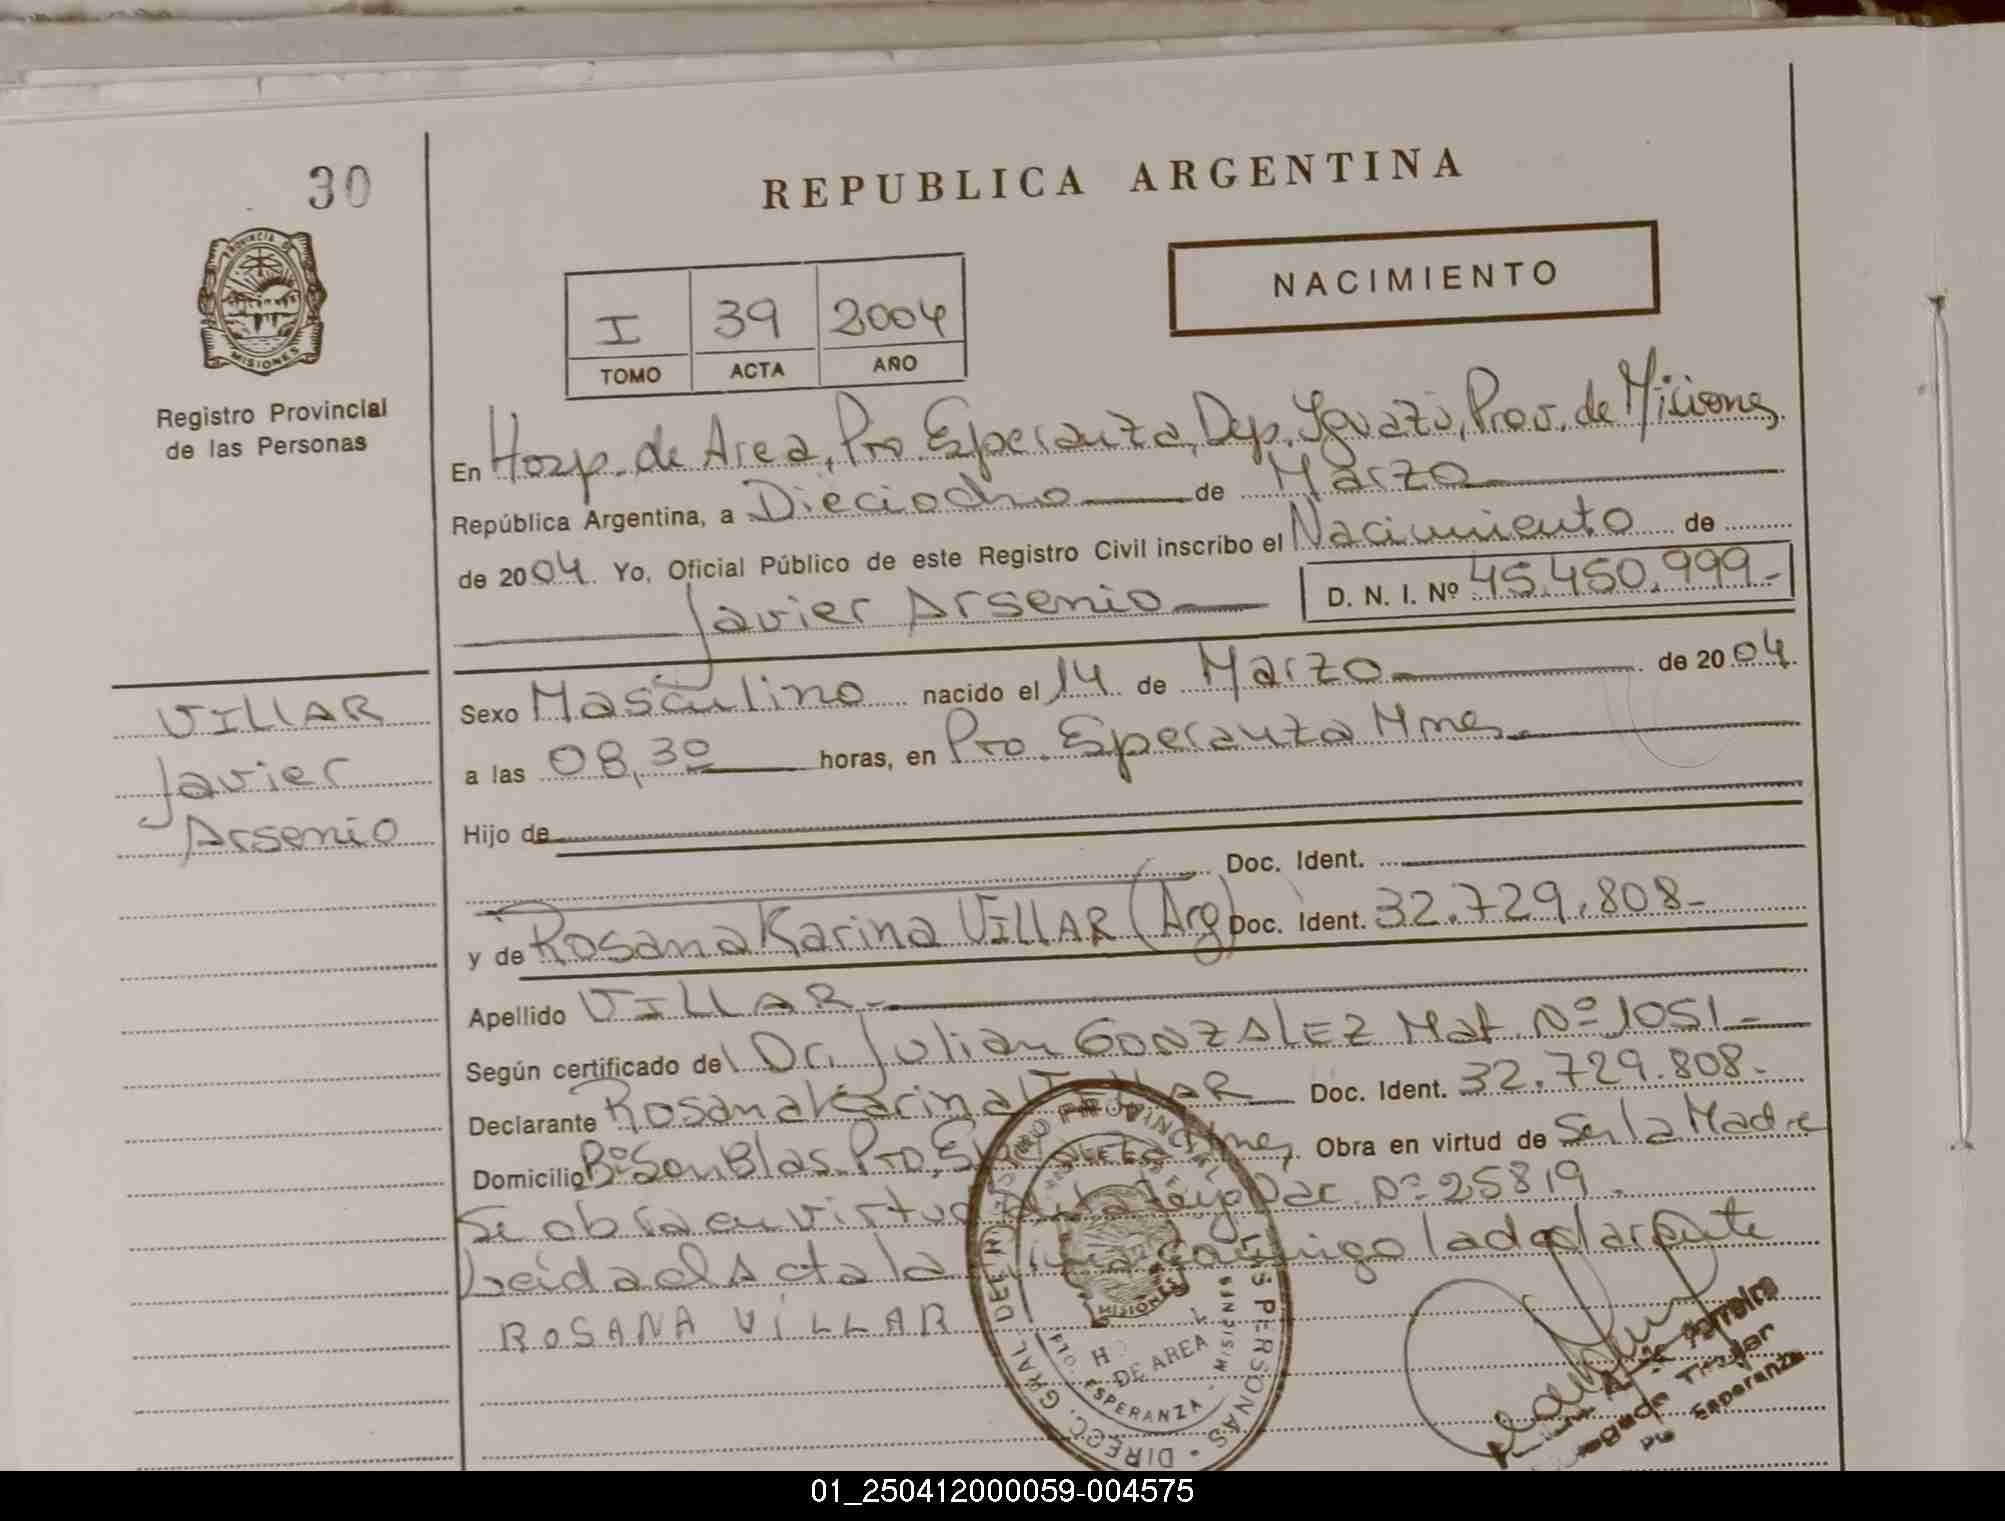 30
REPUBLICA ARGENTINA
NACIMIENTO
PROVINCIA DE
MISIONES
Registro Provincial
de las Personas
I 39 2004
TOMO ACTA AÑO
En Hosp. de Area, Pto. Esperanza, Dep. Iguazú, Prov. de Misiones
República Argentina, a Dieciocho de Marzo
de 2004. Yo, Oficial Público de este Registro Civil inscribo el Nacimiento de
Javier Arsenio D. N. I. Nº 45.450.999-
VILLAR
Javier
Arsenio
Sexo Masculino nacido el 14 de Marzo de 2004
a las 08,30 horas, en Pto. Esperanza Mnes.
Hijo de
Doc. Ident.
y de Rosana Karina VILLAR (Arg) Doc. Ident. 32.729.808-
Apellido VILLAR-
Según certificado del Dr. Julian GONZALEZ Mat. Nº 1051-
Declarante Rosana Karina VILLAR Doc. Ident. 32.729.808-
Domicilio Bº San Blas. Pto. Mnes, Obra en virtud de Ser la Madre
Se obra en virtud de la Ley Nac. Nº 25819.
Leida el Acta la conmigo la declarante
ROSANA VILLAR
DIRECC. GRAL DE PROVINCIAL PERSONAS
MISIONES
DE AREA
PTO. ESPERANZA - MISIONES
Titular
Esperanza
01_250412000059-004575